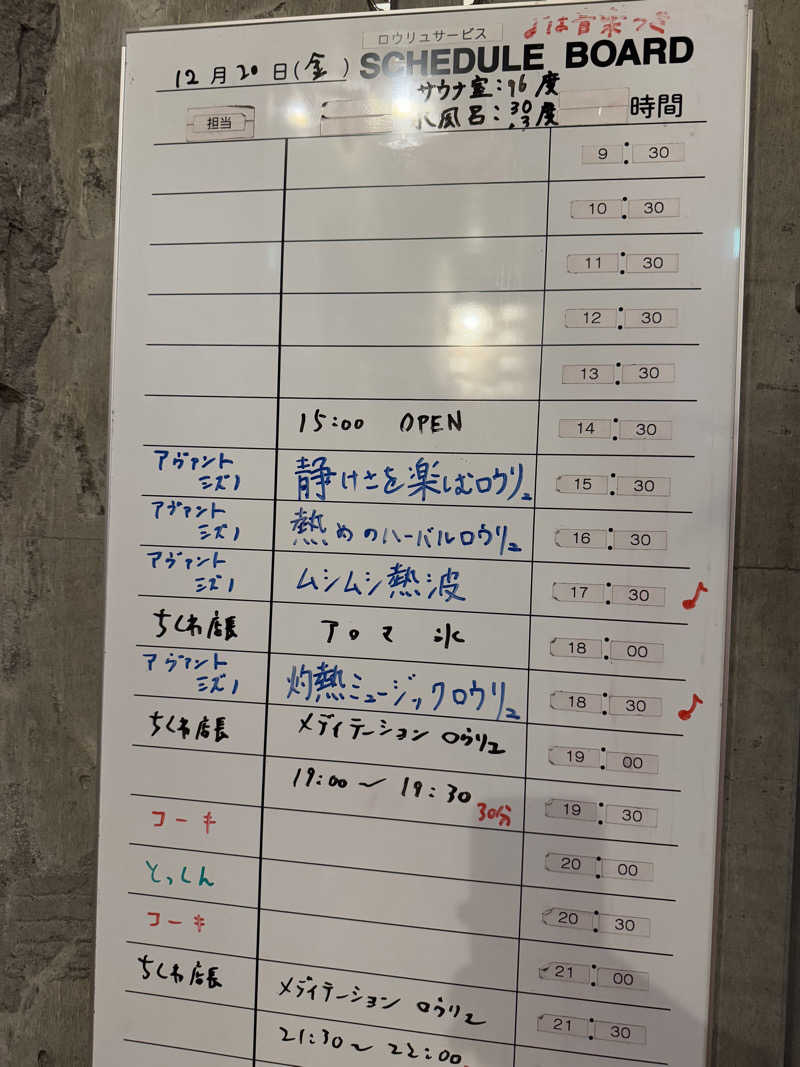 ロウリュサービス
♪は音楽つき
12月20日(金)
SCHEDULE BOARD
サウナ室:96度
水風呂:30
.3度
担当
時間
9:30
10:30
11:30
12:30
13:30
15:00 OPEN 14:30
アヴァント
ミズノ 静けさを楽しむロウリュ 15:30
アヴァント
ミズノ 熱めのハーバルロウリュ 16:30
アヴァント
ミズノ ムシムシ熱波 17:30 ♪
ちくわ店長 アロマ氷 18:00
アヴァント
ミズノ 灼熱ミュージックロウリュ 18:30 ♪
ちくわ店長 メディテーションロウリュ 19:00
19:00〜19:30 30分 19:30
コーキ 20:00
とっくん 20:30
コーキ 21:00
ちくわ店長 メディテーションロウリュ 21:30
21:30〜22:00